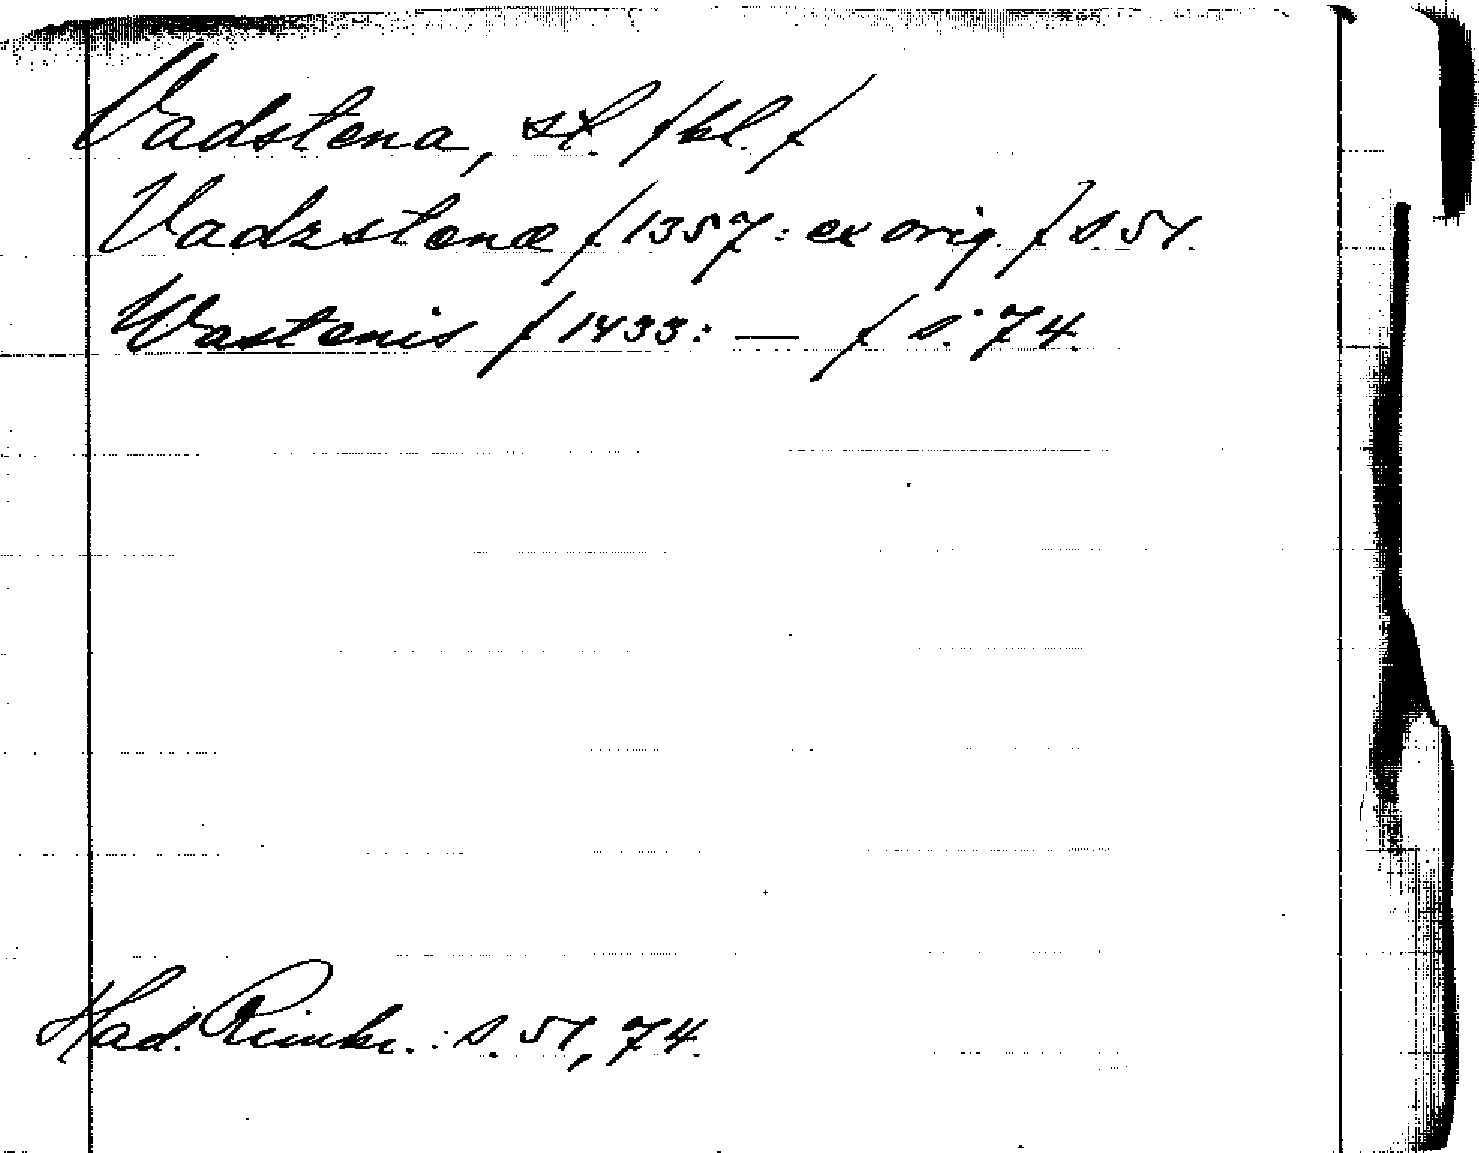 Vadstena, st. /kl./
Vadzstenæ /1357: ex orig./ s. 51.
Wastenis /1433: — / s. 74.
Had. Rimkr.: s. 51, 74.